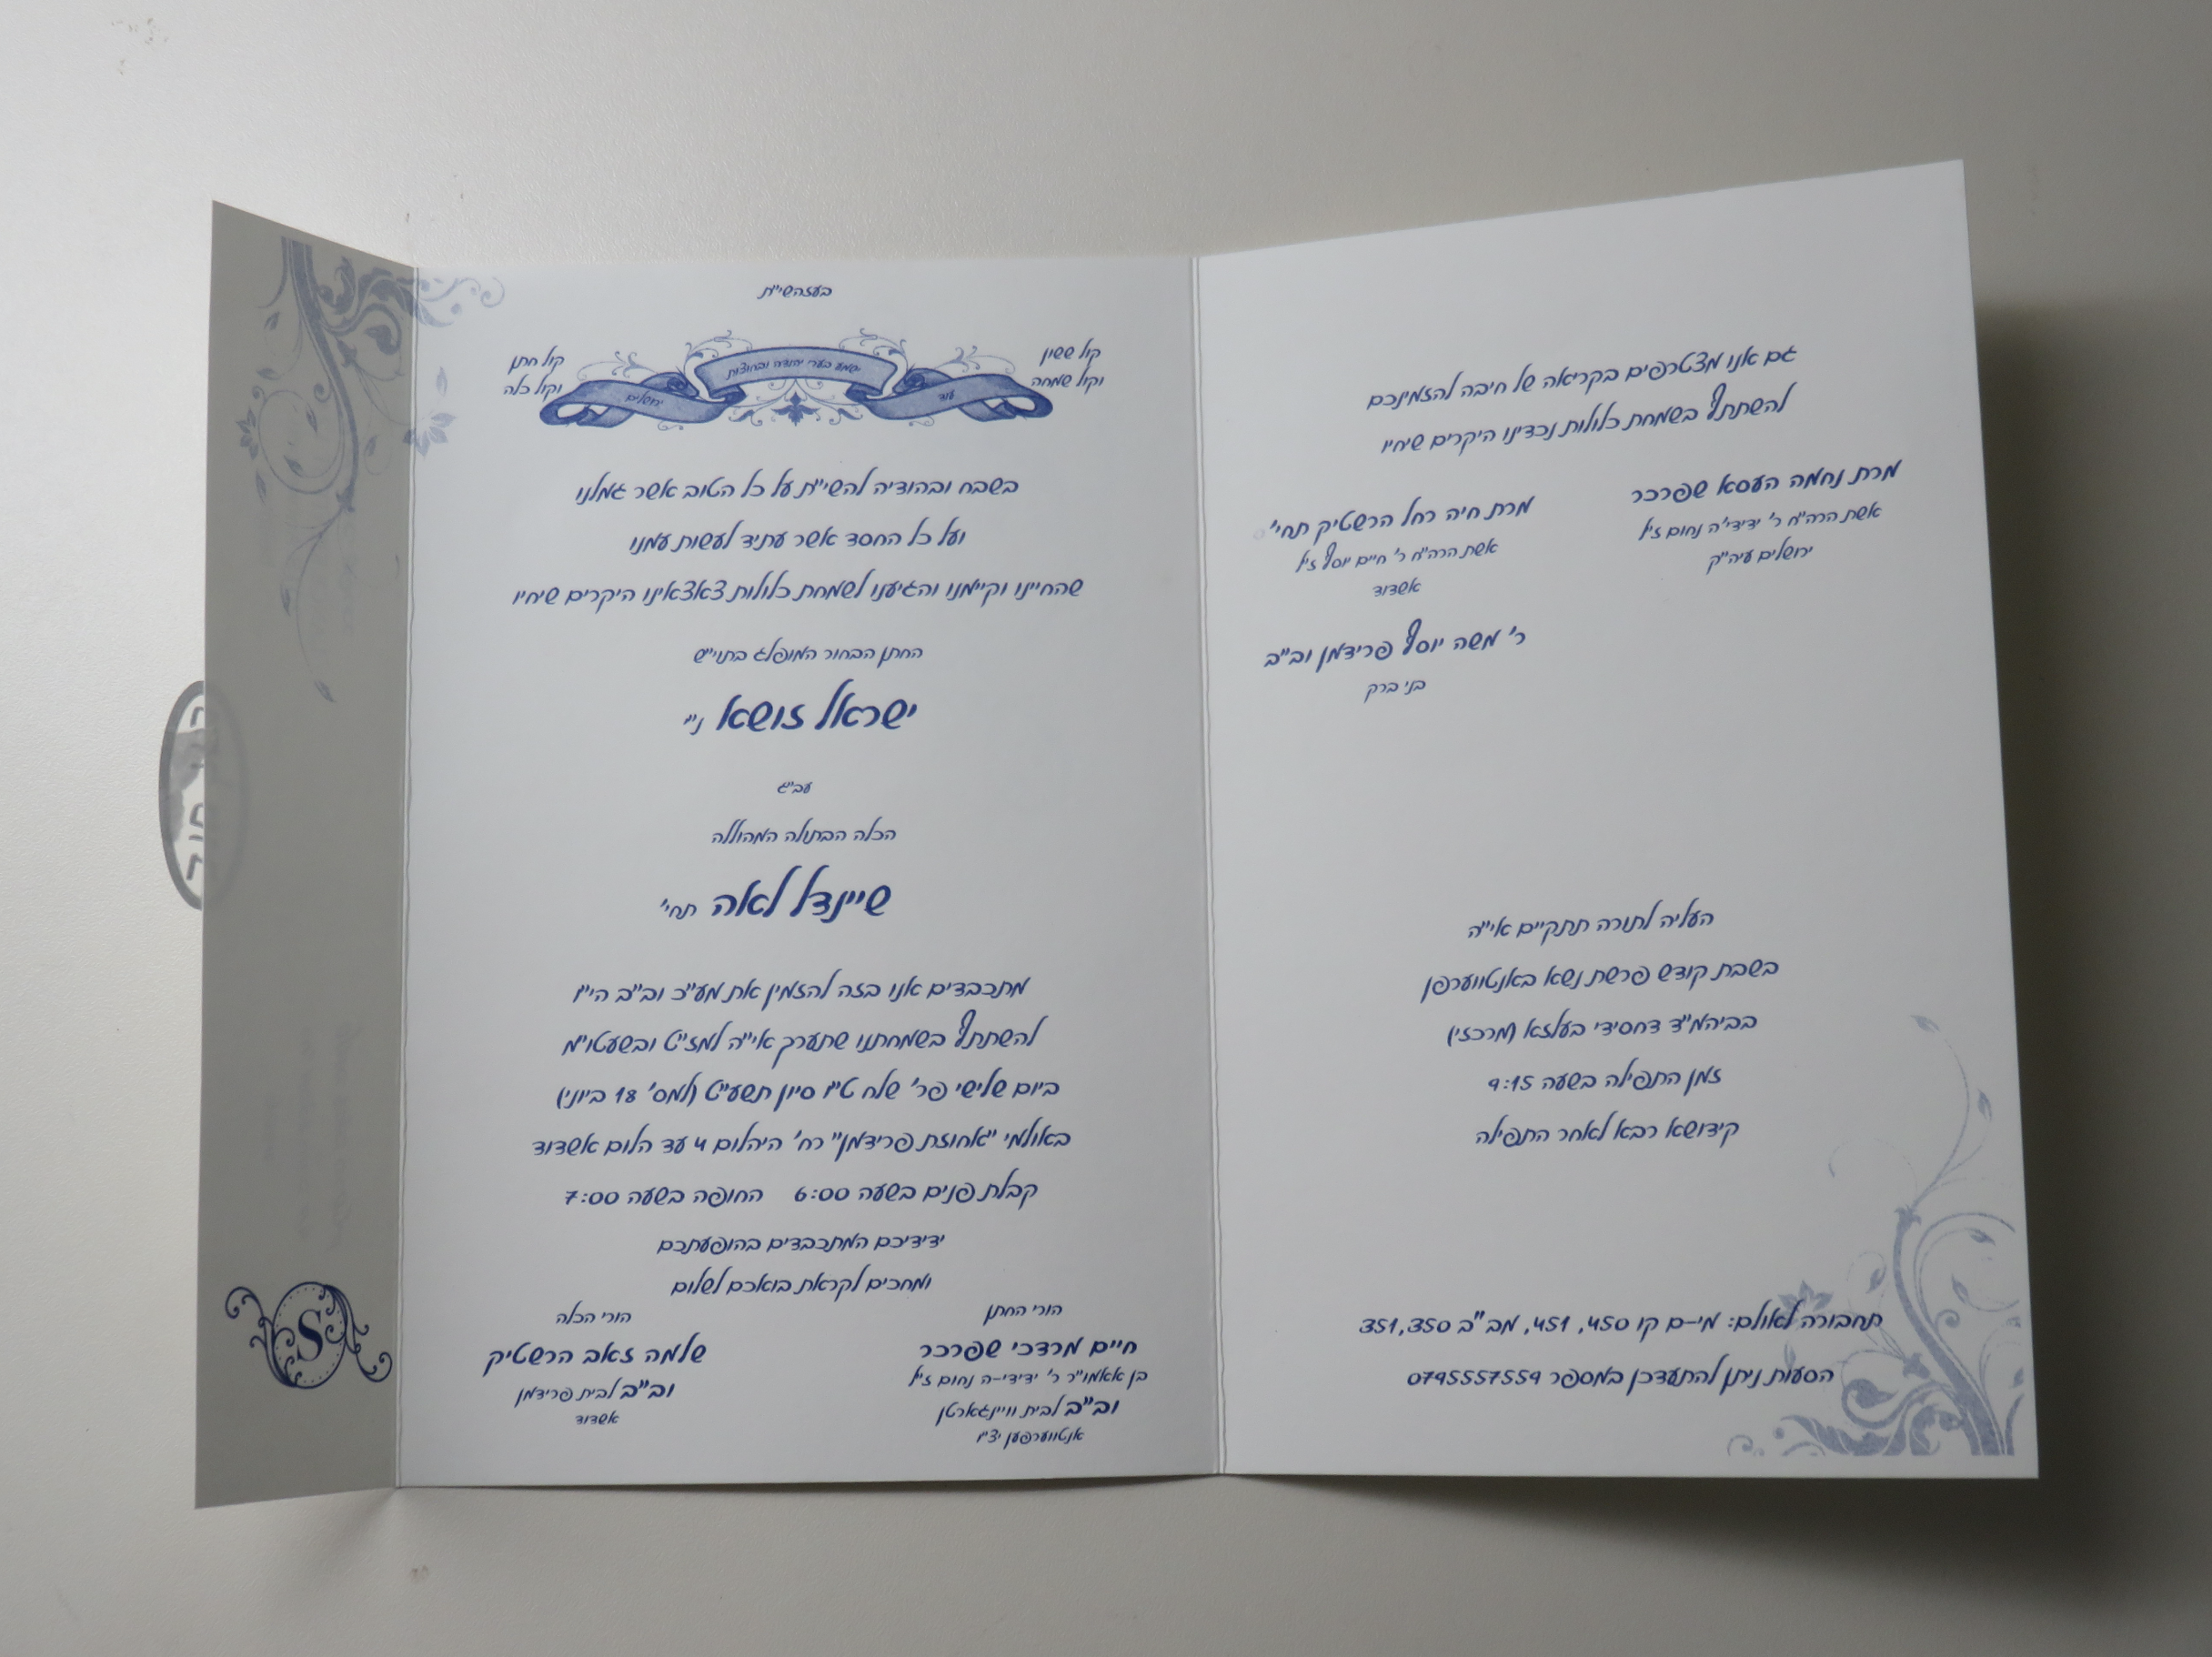 בעזהשי"ת
קול ששון
וקול שמחה
קול חתן
וקול כלה
עוד
ישמע בערי יהודה ובחוצות
ירושלים
בשבח ובהודיה להשי"ת על כל הטוב אשר גמלנו
ועל כל החסד אשר עתיד לעשות עמנו
שהחיינו וקיימנו והגיענו לשמחת כלולות צאצאינו היקרים שיחיו
החתן הבחור המופלג בתוי"ש
ישראל זושא ני"
עב"ג
הכלה הבתולה המהוללה
שיינדל לאה תחי'
מתכבדים אנו בזה להזמין את מע"כ וב"ב הי"ו
להשתתף בשמחתנו שתערך אי"ה למז"ט ובשעטו"מ
ביום שלישי פר' שלח ט"ו סיון תשע"ט (למס' 18 ביוני)
באולמי "אחוזת פרידמן" רח' היהלום 4 עד הלום אשדוד
קבלת פנים בשעה 6:00 החופה בשעה 7:00
ידידיכם המתכבדים בהופעתכם
ומחכים לקראת בואכם לשלום
הורי החתן
חיים מרדכי שפרכר
בן אאמו"ר ר' ידידי-ה נחום ז"ל
וב"ב לבית וויינגארטן
אנטווערפען יצ"ו
הורי הכלה
שלמה זאב הרשטיק
וב"ב לבית פרידמן
אשדוד
גם אנו מצטרפים בקריאה של חיבה להזמינכם
להשתתף בשמחת כלולות נכדינו היקרים שיחיו
מרת נחמה העסא שפרכר
אשת הרה"ח ר' ידידי'ה נחום ז"ל
ירושלים עיה"ק
מרת חיה רחל הרשטיק תחי'
אשת הרה"ח ר' חיים יוסף ז"ל
אשדוד
ר' משה יוסף פרידמן וב"ב
בני ברק
העליה לתורה תתקיים אי"ה
בשבת קודש פרשת נשא באנטווערפן
בביהמ"ד דחסידי בעלזא (מרכזי)
זמן התפילה בשעה 9:15
קידושא רבא לאחר התפילה
תחבורה לאולם: מי-ם קו 450, 451, מב"ב 350, 351
הסעות ניתן להתעדכן במספר 0795557559
S